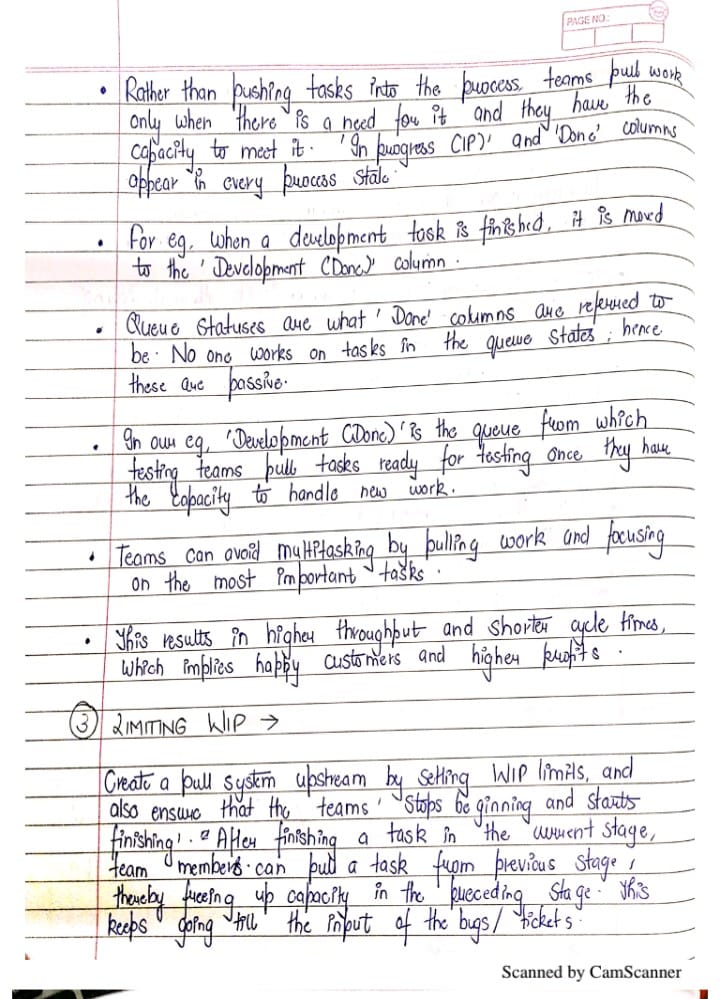 PAGE NO.:
• Rather than pushing tasks into the process, teams pull work
only when there is a need for it and they have the
capacity to meet it. 'In progress (IP)' and 'Done' columns
appear in every process stale.
• For eg, when a development task is finished, it is moved
to the 'Development (Done)' column.
• Queue statuses are what 'Done' columns are referred to
be. No one works on tasks in the queue states; hence
these are passive.
• In our eg, 'Development (Done)' is the queue from which
testing teams pull tasks ready for testing once they have
the capacity to handle new work.
• Teams can avoid multitasking by pulling work and focusing
on the most important tasks.
• This results in higher throughput and shorter cycle times,
which implies happy customers and higher profits.
③ LIMITING WIP →
Create a pull system upstream by setting WIP limits, and
also ensure that the teams 'stops beginning and starts
finishing'. After finishing a task in the current stage,
team members can pull a task from previous stage,
thereby freeing up capacity in the preceding stage. This
keeps going till the input of the bugs/ tickets.
Scanned by CamScanner